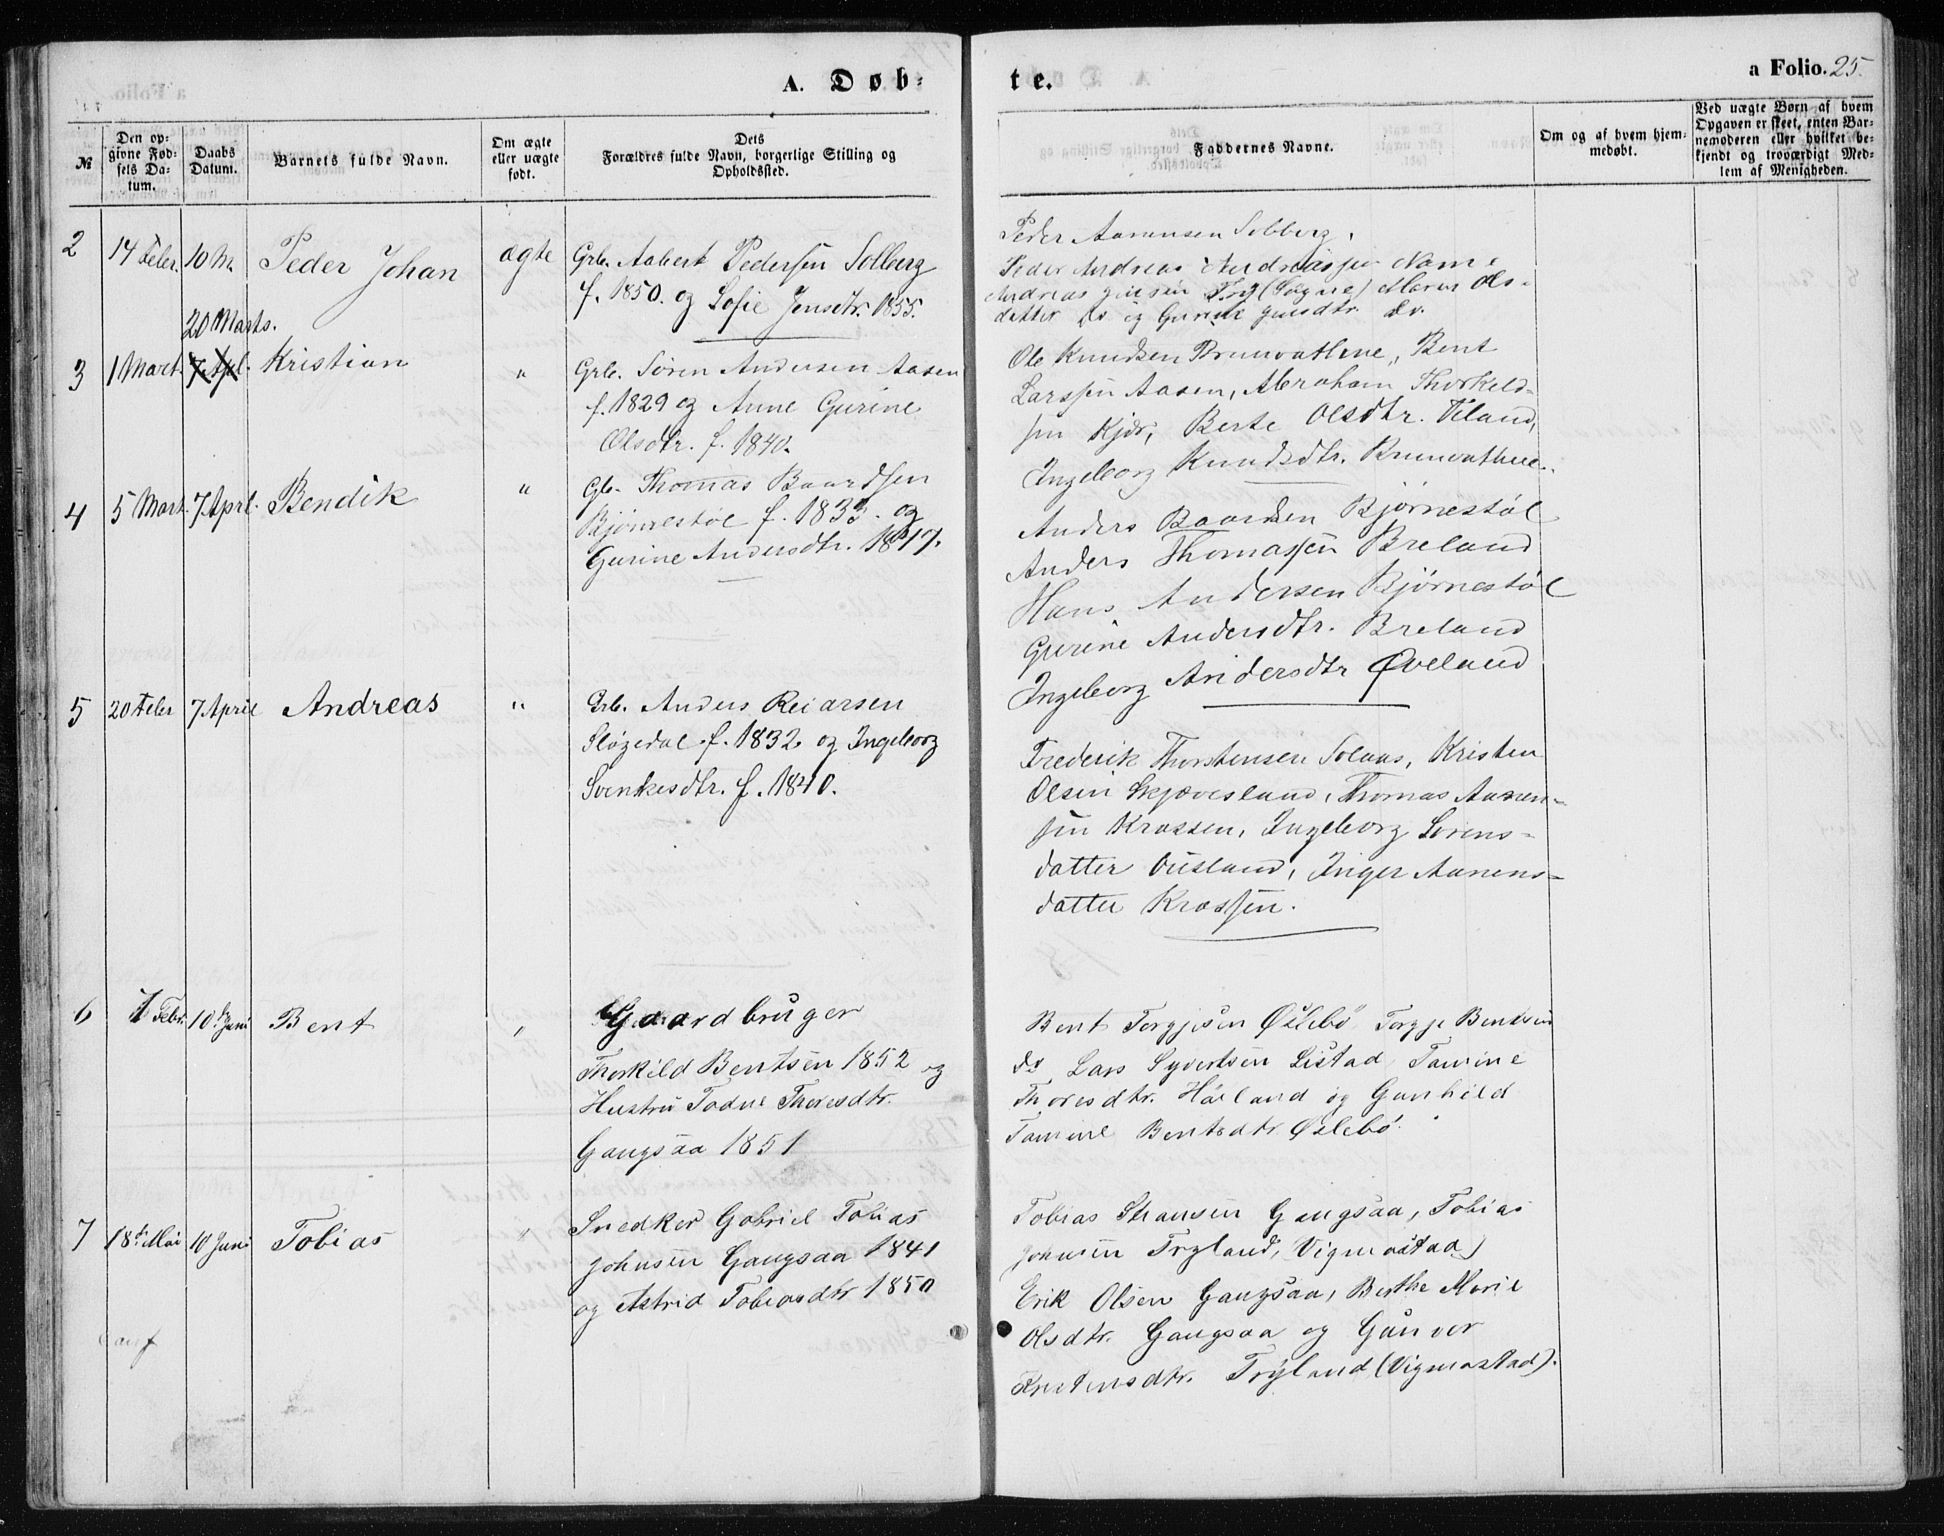 A. Døb-
te.
a Folio. 25.
№
Den op-
givne Fød-
sels Da-
tum.
Daabs
Datum.
Barnets fulde Navn.
Om ægte
eller uægte
født.
Dets
Forældres fulde Navn, borgerlige Stilling og
Opholdssted.
Faddernes Navne.
Om og af hvem hjem-
medøbt.
Ved uægte Børn af hvem
Opgaven er skeet, enten Bar-
nemoderen eller hvilket be-
kjendt og troværdigt Med-
lem af Menigheden.
2
14 Febr.
10 M
20 Marts.
Peder Johan
ægte
Grb. Aabert Pedersen Solberg
f. 1850. og Sofie Jensdtr. 1855.
Peder Aanensen Solberg,
Peder Andreas Andreassen
Andreas Jensen Try (Søgne) Maren Ols-
datter do og Gurine Jensdtr. do.
3
1 Mart.
7 Apl.
Kristian
"
Grb. Søren Andersen Aasen
f. 1829 og Anne Gurine
Olsdtr. f. 1840.
Ole Knudsen Brunvathne, Bent
Larssen Aasen, Abraham Thorkeld-
sen Kjær, Berte Olsdtr. Viland,
Ingeborg Knudsdtr. Brunvathne.
4
5 Mart.
7 Aprl.
Bendik
"
Gb. Thomas Baardsen
Bjørnestøl f. 1833. og
Gurine Andersdtr. 1847.
Anders Baardsen Bjørnestøl
Anders Thomassen Breland
Hans Andersen Bjørnestøl
Gurine Andersdtr. Breland
Ingeborg Andersdtr Øveland
5
20 Febr
7 April
Andreas
"
Grb. Anders Reiarsen
Sløgedal f. 1832 og Ingeborg
Svenkesdtr. f. 1840.
Frederik Thorstensen Solaas, Kristen
Olsen Skjævesland, Thomas Aanen-
sen Krossen, Ingeborg Sørens-
datter Ousland, Inger Aanens-
datter Krossen.
6
7 Febr.
10 Juni
Bent
"
Gaardbruger
Thorkild Bentsen 1852 og
Hustru Todne Thoresdtr.
Gangsaa 1851
Bent Torgjesen Øslebø Torgje Bentsen
do Lars Syvertsen Listad Tamine
Thoresdtr. Høiland og Gunhild
Tamine Bentsdtr. Øslebø.
7
18de Mai
10 Juni
Tobias
"
Snedker Gabriel Tobias
Johnsen Gangsaa 1841
og Astrid Tobiasdtr 1850
Tobias Gangsaa, Tobias
Johnsen Trygland, Vigmostad)
Erik Olsen Gangsaa, Berthe Marie
Olsdtr. Gangsaa og Gunvor
Kristensdtr. Trygland (Vigmostad).